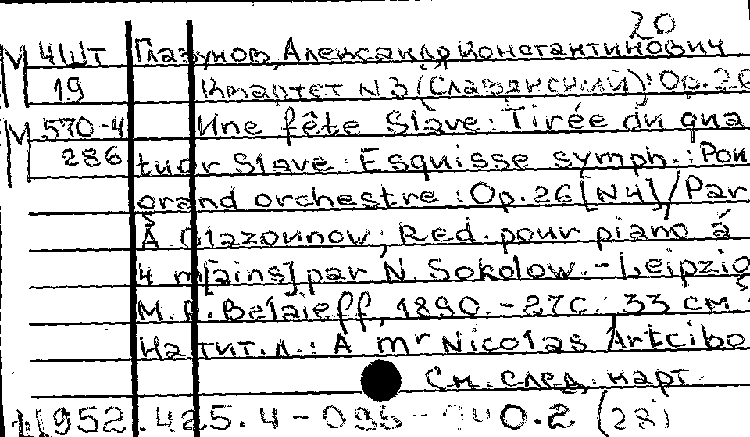 20
М 4ШТ Глазунов, Александр Константинович
19 Квартет N 3 (Славянский): Op. 26
М 570-4 Une fête Slave: Tirée du qua
286 tuor Slave: Esquisse symph.: Pou
grand orchestre: Op. 26 [N4] / Par
A Glazounow; Red. pour piano à
4 m[ains] par N. Sokolow. - Leipzig
M. P. Belaieff, 1890. - 27с.; 33 см.
На тит. л.: A mr Nicolas Artcibo
См. след. карт.